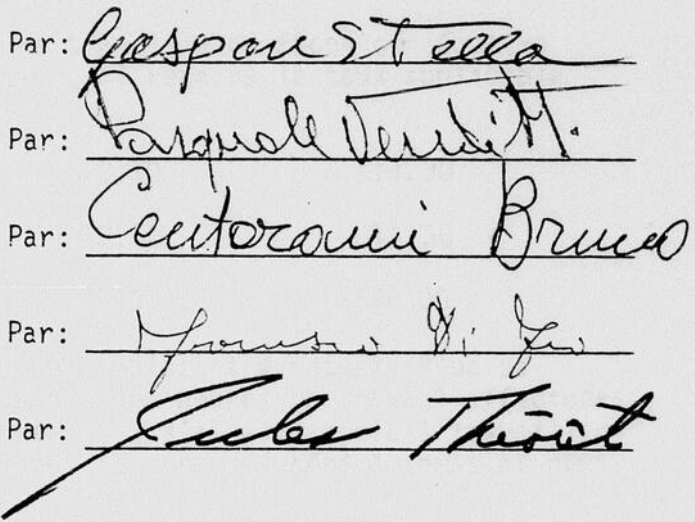 Par: Gaspare Stella
Par: Pasquale Venditti.
Par: Centorami Bruno
Par: Di
Par: Jules Théorêt